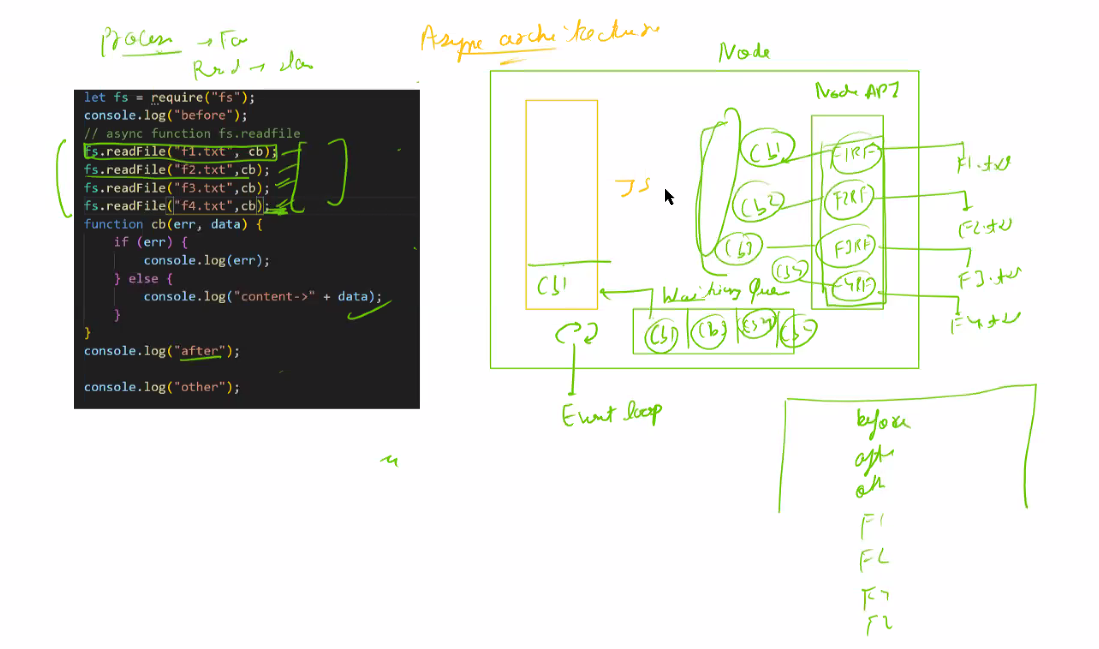 Process → Fa
Read → slow
Async architecture
Node
let fs = require("fs");
console.log("before");
// async function fs.readfile
fs.readFile("f1.txt", cb);
fs.readFile("f2.txt",cb);
fs.readFile("f3.txt",cb);
fs.readFile("f4.txt",cb);
function cb(err, data) {
if (err) {
console.log(err);
} else {
console.log("content->" + data);
}
}
console.log("after");
console.log("other");
Node API
JS
cb1
F1RF
F1.txt
cb2
F2RF
F2.txt
cb3
F3RF
F3.txt
cb4
F4RF
F4.txt
cb1
cb1
Event loop
before
F1